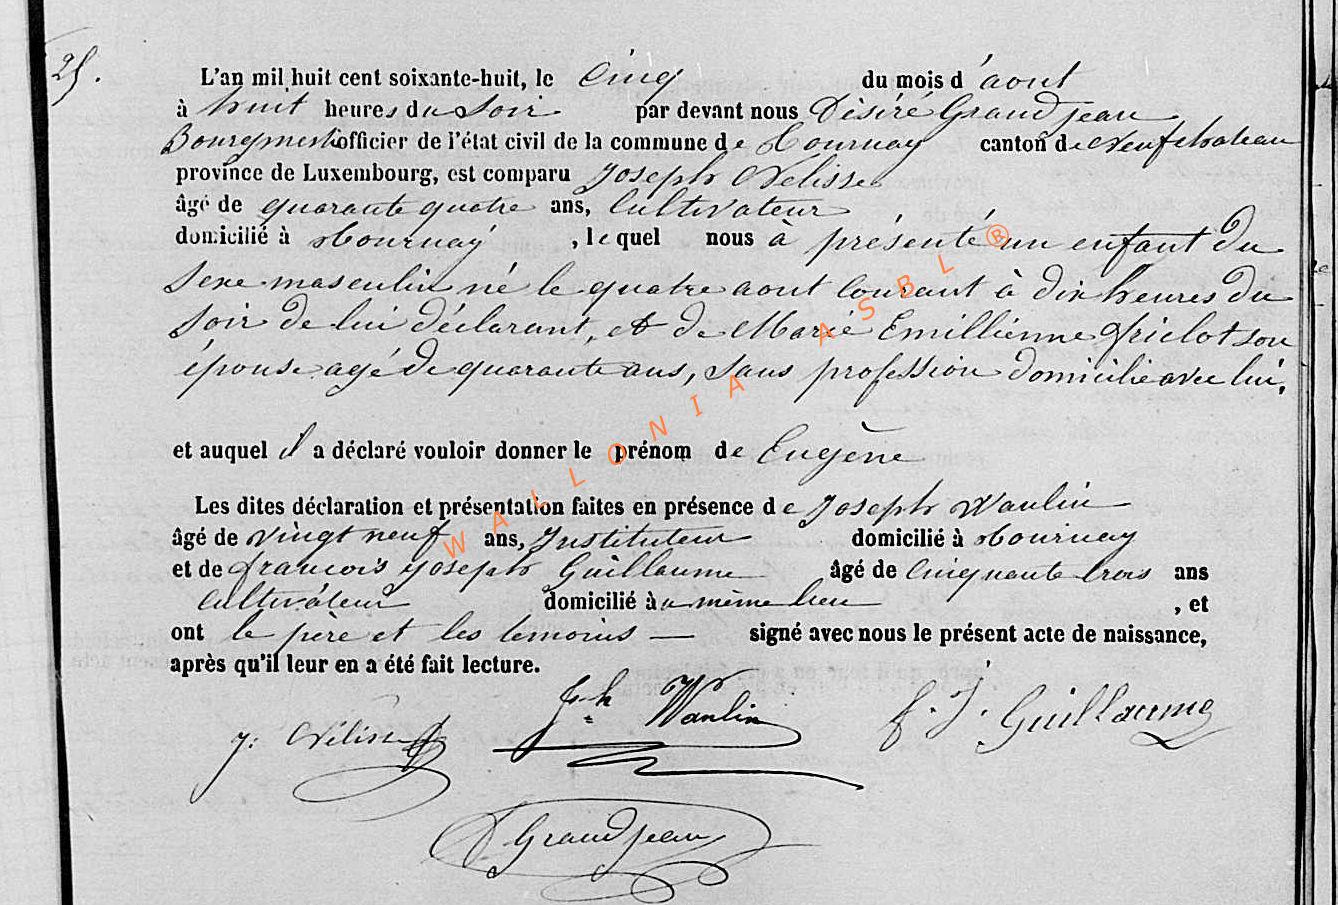 25.
L'an mil huit cent soixante-huit, le Cinq du mois d'aout
à huit heures du Soir par devant nous Désiré Grandjean
Bourgmestre officier de l'état civil de la commune de Tournay canton de Neufchateau
province de Luxembourg, est comparu Joseph Nelisse
âgé de quarante quatre ans, Cultivateur
domicilié à Tournay, lequel nous à présenté un enfant du
Sexe masculin né le quatre aout Courant à dix heures du
Soir de lui déclarant, et de Marie Emillienne Friclot son
épouse agé de quarante ans, Sans profession domicilié avec lui.
et auquel il a déclaré vouloir donner le prénom de Eugène
Les dites déclaration et présentation faites en présence de Joseph Waulin
âgé de vingt neuf ans, Instituteur domicilié à Tournay
et de francois Joseph Guillaume âgé de Cinquante trois ans
Cultivateur domicilié au même lieu, et
ont le père et les temoins — signé avec nous le présent acte de naissance,
après qu'il leur en a été fait lecture.
J: Nélisse Jh Waulin f. J. Guillaume
D. Grandjean
WALLONIA ASBL ®